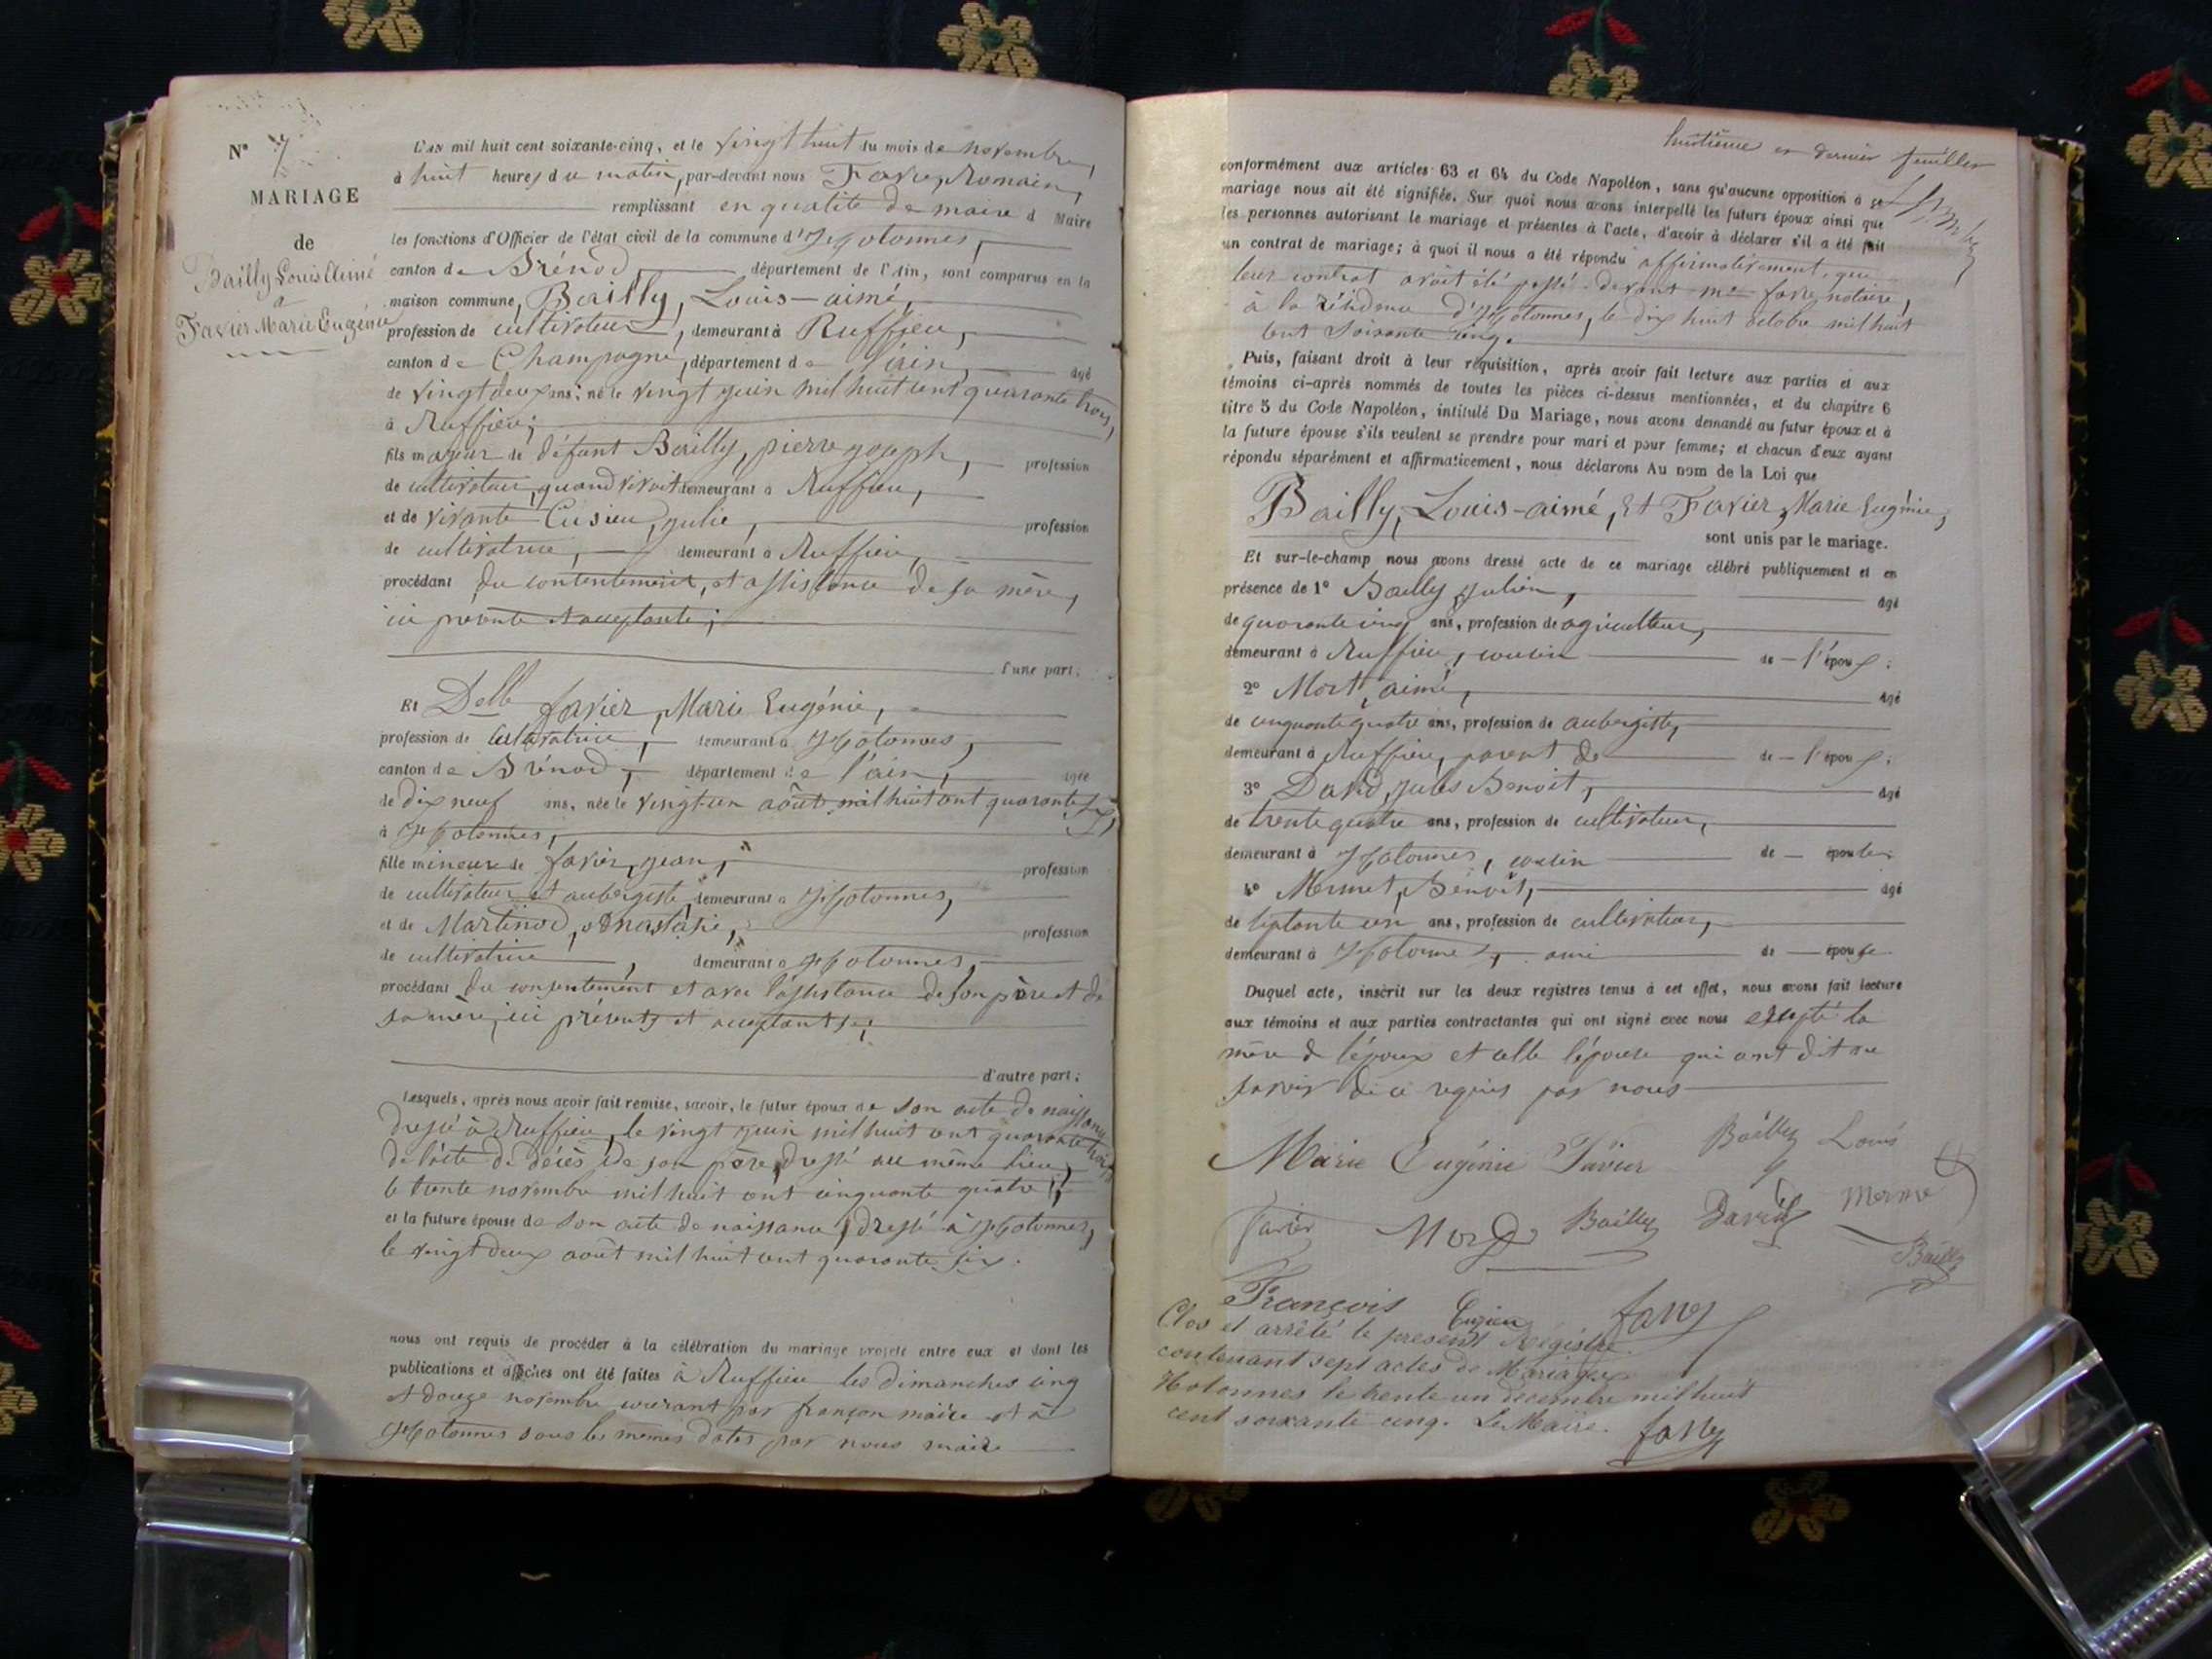 N° 7
MARIAGE
de
Bailly Louis Aimé
à
Favier Marie Eugénie
L'AN mil huit cent soixante-cinq, et le vingt huit du mois de novembre,
à huit heures du matin, par-devant nous Favre, Romain,
remplissant en qualité de maire d Maire
les fonctions d'Officier de l'état civil de la commune d'Hotonnes,
canton de Brénod, département de l'Ain, sont comparus en la
maison commune, Bailly, Louis-aimé,
profession de cultivateur, demeurant à Ruffieu,
canton de Champagne, département de l'ain, âgé
de vingt deux ans; né le vingt juin mil huit cent quarante trois,
à Ruffieu;
fils majeur de défunt Bailly, pierre joseph, profession
de cultivateur, quand vivait demeurant à Ruffieu,
et de vivante Cusieu, julie, profession
de cultivatrice, demeurant à Ruffieu,
procédant du contentement, et assistance de sa mère,
ici présente et acceptante;
d'une part;
Et Delle favier, Marie Eugénie,
profession de cultivatrice, demeurant à Hotonnes,
canton de Brénod, département de l'ain, âgée
de dix neuf ans, née le vingt un août mil huit cent quarante six,
à Hotonnes,
fille mineure de favier, jean, profession
de cultivateur et aubergiste, demeurant à Hotonnes,
et de Martinod, anastasie, profession
de cultivatrice, demeurant à Hotonnes,
procédant du consentement et avec l'assistance de son père et de
sa mère, ici présents et acceptants;
d'autre part;
Lesquels, après nous avoir fait remise, savoir, le futur époux de son acte de naissance
dressé à Ruffieu, le vingt juin mil huit cent quarante trois,
de l'acte de décès de son père, dressé au même lieu,
le trente novembre mil huit cent cinquante quatre;
et la future épouse de son acte de naissance, dressé à Hotonnes,
le vingt deux août mil huit cent quarante six.
nous ont requis de procéder à la célébration du mariage projeté entre eux et dont les
publications et affiches ont été faites à Ruffieu les dimanches cinq
et douze novembre courant par françon maire et à
Hotonnes sous les mêmes dates par nous maire
huitième et dernier feuillet
conformément aux articles 63 et 64 du Code Napoléon, sans qu'aucune opposition à ce
mariage nous ait été signifiée. Sur quoi nous avons interpellé les futurs époux ainsi que
les personnes autorisant le mariage et présentes à l'acte, d'avoir à déclarer s'il a été fait
un contrat de mariage; à quoi il nous a été répondu affirmativement, que
leur contrat avait été passé devant me favre notaire,
à la résidence d'Hotonnes, le dix huit octobre mil huit
cent soixante cinq.
Puis, faisant droit à leur réquisition, après avoir fait lecture aux parties et aux
témoins ci-après nommés de toutes les pièces ci-dessus mentionnées, et du chapitre 6
titre 5 du Code Napoléon, intitulé Du Mariage, nous avons demandé au futur époux et à
la future épouse s'ils veulent se prendre pour mari et pour femme; et chacun d'eux ayant
répondu séparément et affirmativement, nous déclarons Au nom de la Loi que
Bailly, Louis-aimé, Et Favier, Marie Eugénie,
sont unis par le mariage.
Et sur-le-champ nous avons dressé acte de ce mariage célébré publiquement et en
présence de 1° Bailly Julien, âgé
de quarante cinq ans, profession de agriculteur,
demeurant à Ruffieu, cousin de l'époux;
2° Mort, aimé, âgé
de cinquante quatre ans, profession de aubergiste,
demeurant à Ruffieu, parent de de l'époux;
3° David, jules Benoit, âgé
de trente quatre ans, profession de cultivateur,
demeurant à Hotonnes, cousin de épouse;
4° Mermet, Benoît, âgé
de septante un ans, profession de cultivateur,
demeurant à Hotonnes, ami de épouse
Duquel acte, inscrit sur les deux registres tenus à cet effet, nous avons fait lecture
aux témoins et aux parties contractantes qui ont signé avec nous excepté la
mère de l'époux et celle l'épouse qui ont dit ne
savoir de ce requis par nous
Marie Eugénie Favier Bailly Louis
Favier Mort Bailly David Mermet
Bailly
François Cuzieu favre
Clos et arrêté le présent Régistre
contenant sept actes de Mariage
Hotonnes le trente un décembre mil huit
cent soixante cinq. Le Maire. favre